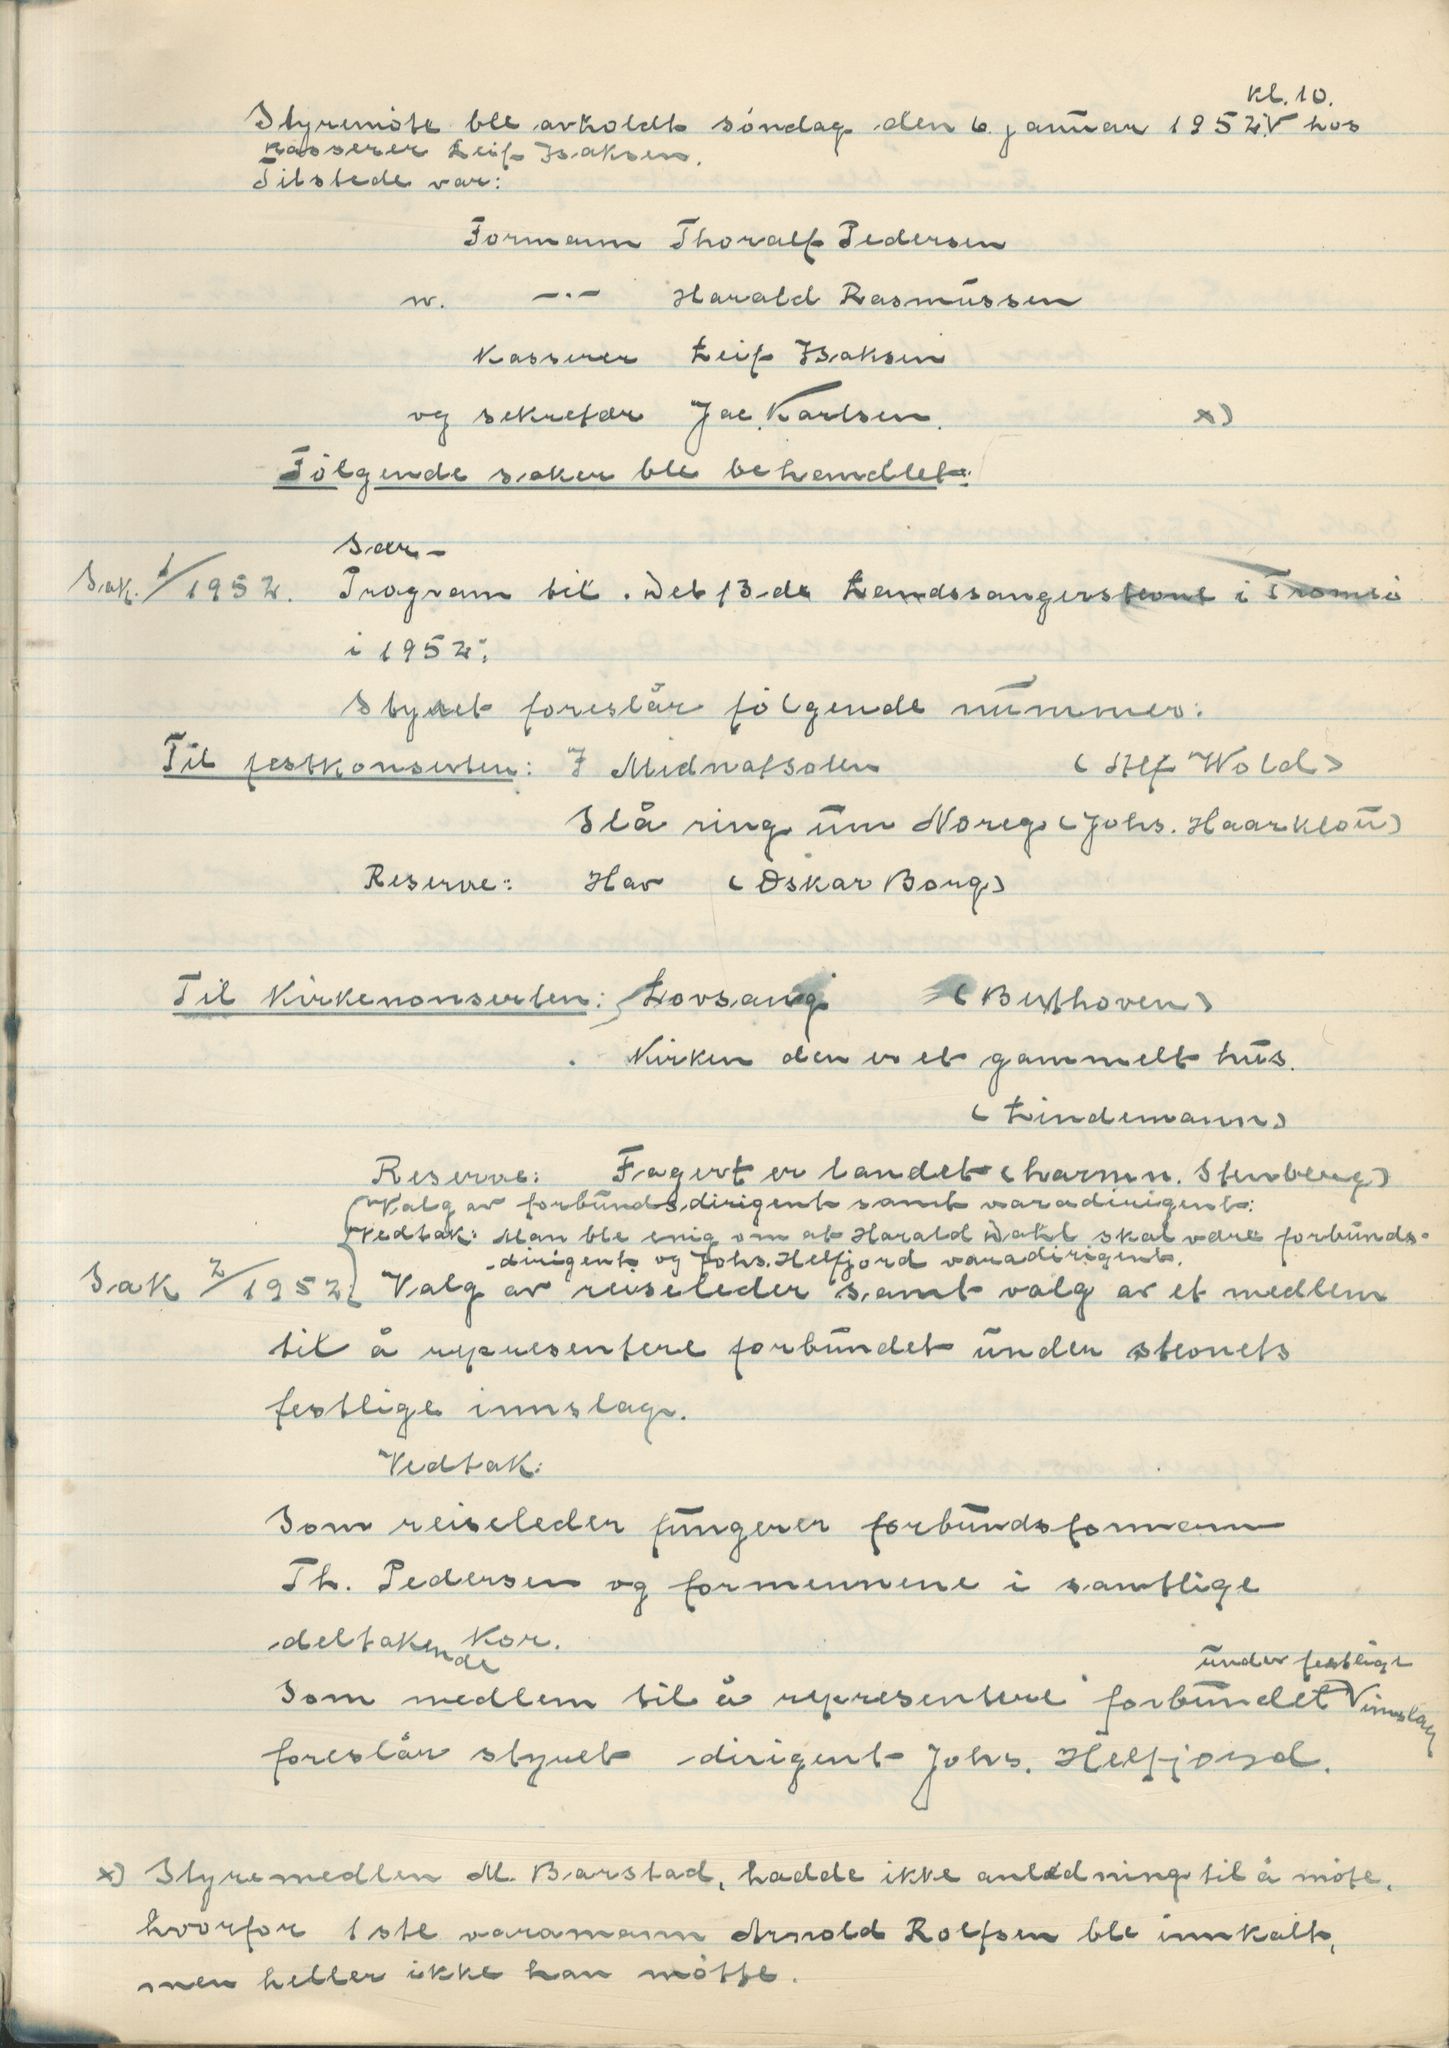 kl. 10.
Styremöte ble avholdt söndag den 6. januar 1952 V hos
kasserer Leif Isaksen.
Tilstede var:
Formann Thoralf Pedersen
v. —·— Harald Rasmussen
Kasserer Leif Isaksen
og sekretær Jac. Karlsen. x)
Fölgende saker ble behandlet:
Sær-
Sak. 1/1952. Program til Det 13-de Landssangerstevne i Tromsö
i 1952:
Styret foreslår fölgende nummer:
Til festkonserten: I Midnatsolen (Alf Wold)
Slå ring um Noreg (Johs. Haarklou)
Reserve: Hav (Oskar Borg)
Til Kirkekonserten: Lovsang (Beethoven)
Kirken den er et gammelt hus.
(Lindemann)
Reserve: Fagert er landet (harmn. Stenberg)
Valg av forbundsdirigent samt varadirigent:
Vedtak: Man ble enig om at Harald Dahl skal være forbunds-
dirigent og Johs. Helfjord varadirigent.
Sak 2/1952 Valg av reiseleder samt valg av et medlem
til å representere forbundet under stevnets
festlige innslag.
Vedtak:
Som reiseleder fungerer forbundsformann
Th. Pedersen og formennene i samtlige
deltakende kor.
under festlige
Som medlem til å representere forbundet V innslag
foreslår styret dirigent Johs. Helfjord.
x) Styremedlem M. Barstad, hadde ikke anledning til å möte,
hvorfor 1ste varamann Arnold Rolfsen ble innkalt,
men heller ikke han mötte.